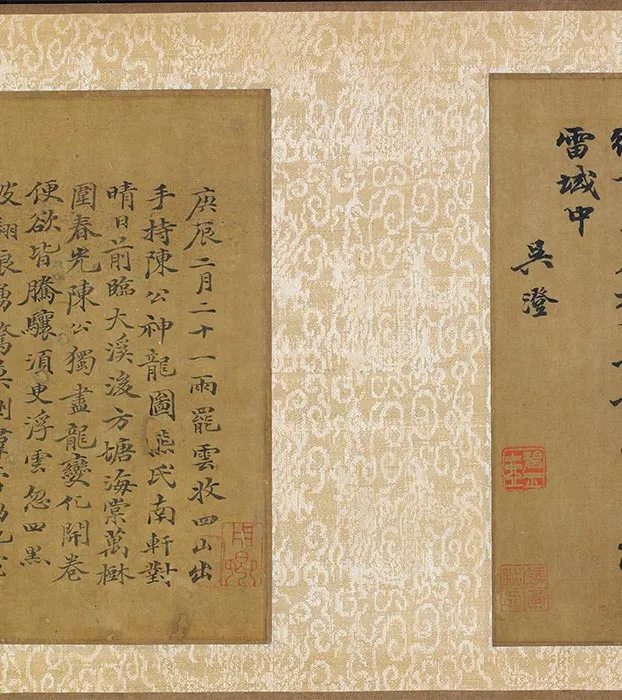 雷域中
吳澄
庚辰二月二十一雨罷雲收四山出
手持陳公神龍圖熊氏南軒對
晴日前臨大溪浚方塘海棠萬樹
圍春光陳公獨盡龍變化開卷
便欲皆騰驤須臾浮雲忽四黑
波翻浪湧驚